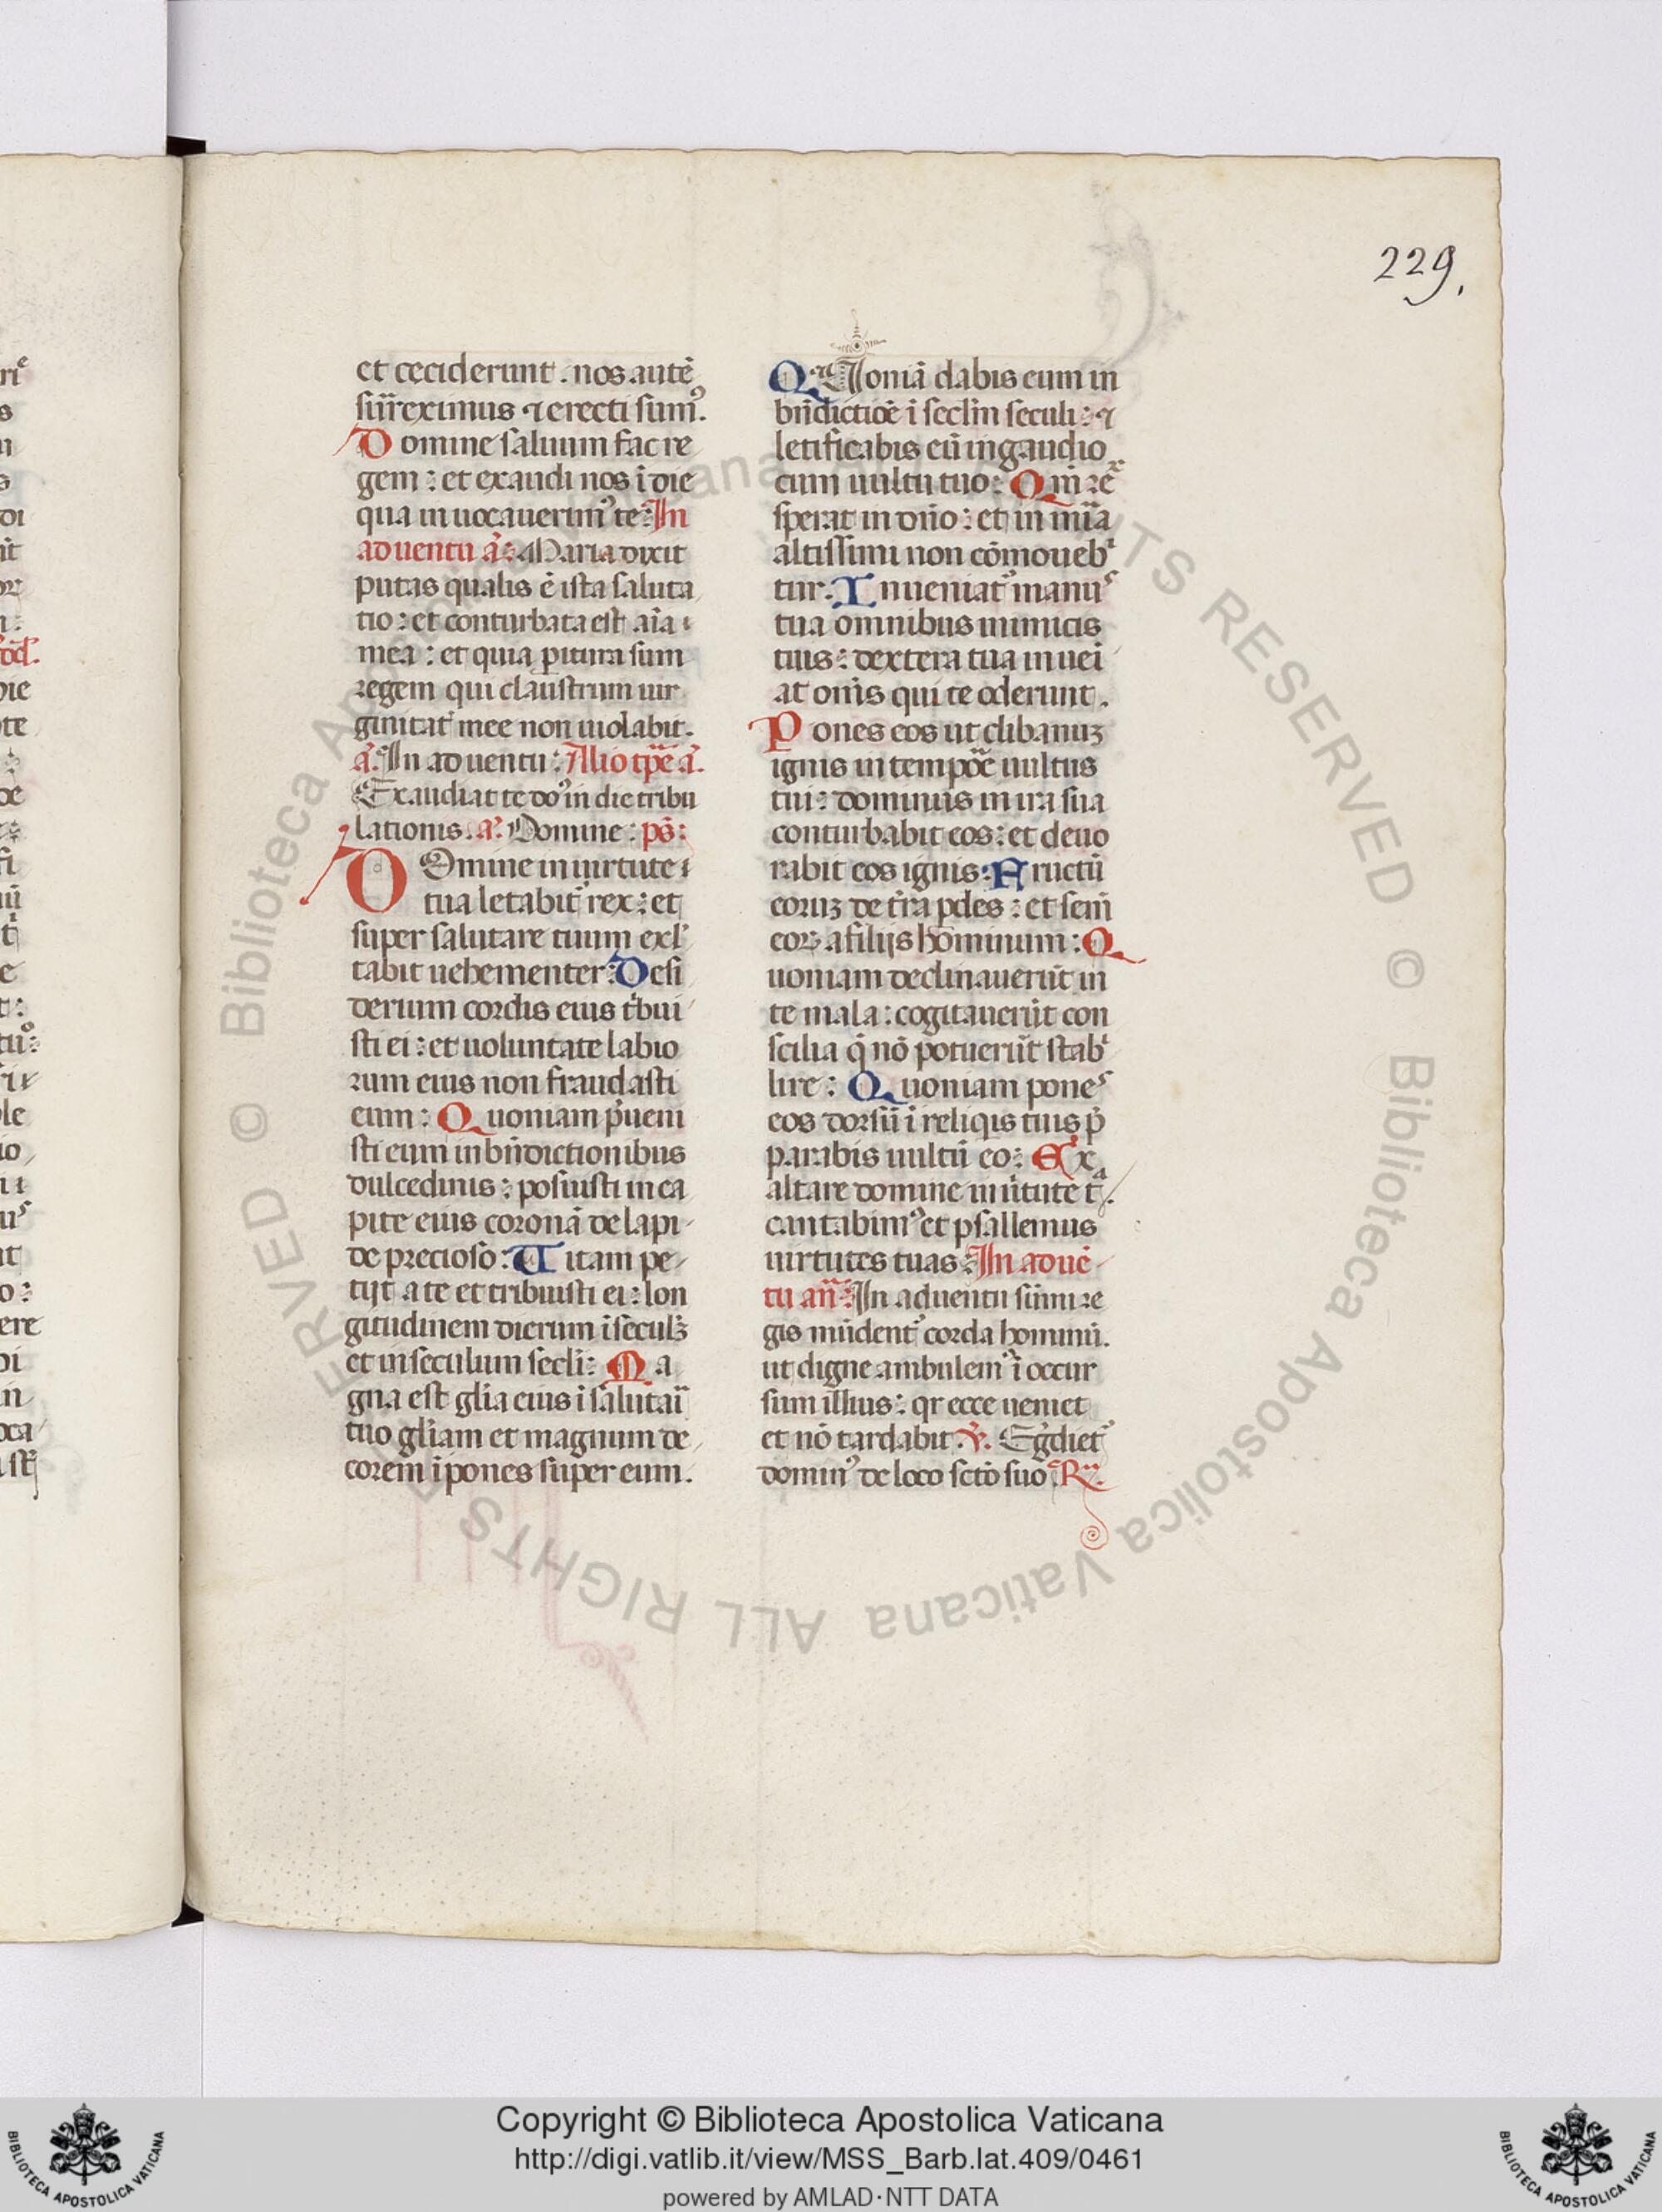 229.
et ceciderunt. nos autē
surreximus ⁊ erecti sum⁹.
Domine saluum fac re
gem : et exaudi nos ī die
qua inuocauerim⁹ te : In
aduentu a͞. Maria dixit
putas qualis ē ista saluta
tio : et conturbata est aīa
mea : et quia pitura sum
regem qui claustrum uir
ginitat mee non uiolabit.
a͞. In aduentu : Alio tp̄e a͞.
Exaudiat te do⁹ in die tribu
lationis. a͞. Domine : ps̄ :
DOmine in uirtute
tua letabit rex : et
super salutare tuum exl
tabit uehementer : Desi
derium cordis eius tbui
sti ei : et uoluntate labio
rum eius non fraudasti
eum : Quoniam pueni
sti eum in bn̄dictionibus
dulcedinis : posuisti in ca
pite eius coronā de lapi
de precioso : Uitam pe
tijt a te et tribuisti ei : lon
gitudinem dierum ī seculꝫ
et in seculum secli : Ma
gna est glīa eius ī salutai
tuo glīam et magnum de
corem īpones super eum.
QUoniā dabis eum in
bn̄dictiōē ī seclm̄ seculi : ⁊
letificabis eū in gaudio
cum uultu tuo : Qm̄ rex
sperat in dn̄o : et in mīa
altissimi non cōmouebi
tur. Inueniat manus
tua omnibus inimicis
tuis : dextera tua inuei
at om̄s qui te oderunt.
Pones eos ut clibanuꝫ
ignis in tempōē uultus
tui : dominus in ira sua
conturbabit eos : et deuo
rabit eos ignis : Fructū
eoruꝫ de tr̄a pdes : et sem̄
eoꝝ a filijs hominum : Q
uoniam declinauerūt in
te mala : cogitauerūt con
scilia q̄ nō potuerūt stabi
lire : Quoniam pones
eos dorsū ī reliqis tuis p̄
parabis uultū eo : Ex
altare domine in ūtute ta.
cantabim⁹ et psallemus
uirtutes tuas : In aduē
tu an̄ : In aduentu sūmi re
gis mūdent corda hominū.
ut digne ambulem⁹ ī occur
sum illius : qr ecce ueniet
et nō tardabit. ℣. Egdiet
domin⁹ de loco scto suo. R̄.
Copyright © Biblioteca Apostolica Vaticana
http://digi.vatlib.it/view/MSS_Barb.lat.409/0461
powered by AMLAD·NTT DATA
BIBLIOTECA APOSTOLICA VATICANA
BIBLIOTECA APOSTOLICA VATICANA
© Biblioteca Apostolica Vaticana ALL RIGHTS RESERVED © Biblioteca Apostolica Vaticana ALL RIGHTS RESERVED